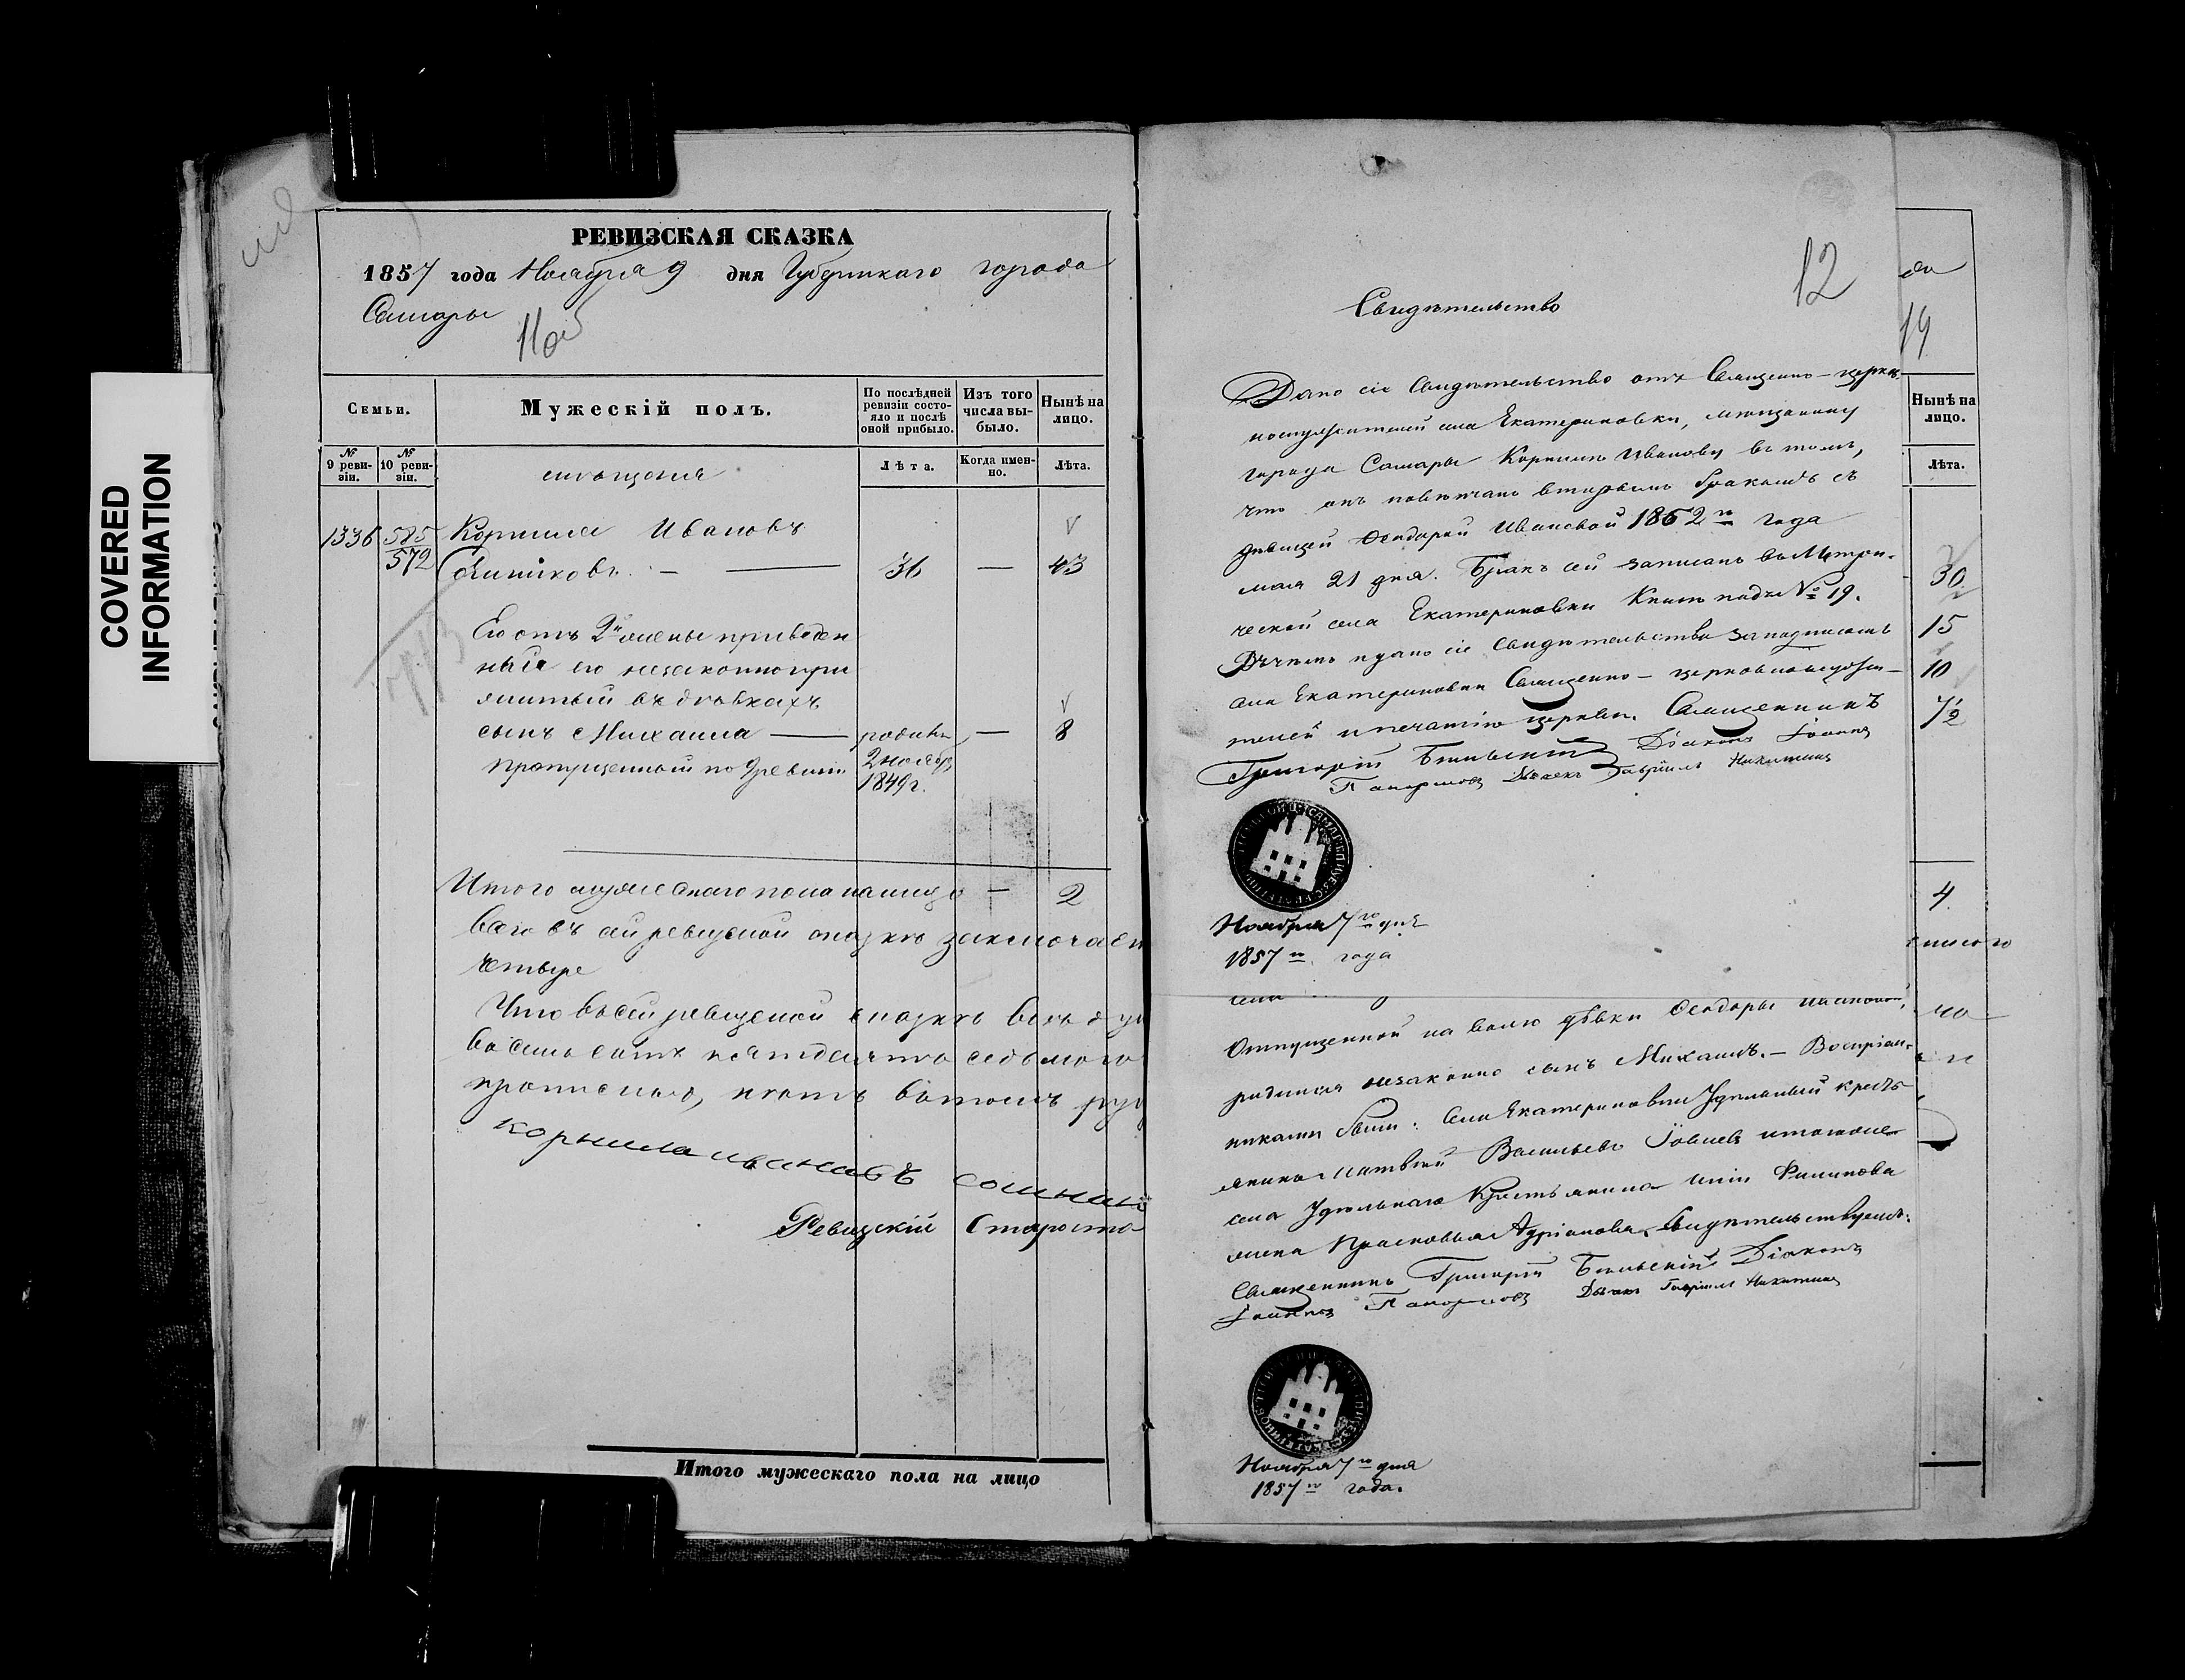 COVERED
INFORMATION
РЕВИЗСКАЯ СКАЗКА
1857 года Ноября 9 дня Губернскаго города
Самары
11об
Семьи.
Мужескій полъ.
По послѣдней ревизіи состо-яло и послѣ оной прибыло.
Изъ того числа вы-было.
Нынѣ на лицо.
№ 9 реви-зіи.
№ 10 реви-зіи.
мещаня
Лѣта.
Когда имен-но.
Лѣта.
1336 585 Корнила Ивановъ
572 36 — 43
Его отъ 2й жены приведен
ный его незаконнопри
житый въ девкахъ
сынъ Михаила — родивш. — 8
пропущенный по 9 ревизіи 2 ноября
1849г.
Итого мужескаго пола на лицо — 2
Всего въ сей ревизской сказке заключает
четыре
Что в сей ревизской сказке всѣ д
восемь сотъ пятдесятго седьмого
прописаны, и нетъ
корнила ивановъ
Ревизскій Староста
Итого мужескаго пола на лицо
12
Свидѣтельство
Дано сіе Свидѣтельство отъ Священно-церков-
нослужителей села Екатериновки, мѣщанину
города Самары Корнилѣ Иванову въ томъ,
что онъ повѣнчанъ вторымъ бракомъ съ
дѣвицей Феодорой Ивановой 1852го года
мая 21 дня. Бракъ сей записанъ въ Метри-
ческой села Екатериновки Книгѣ подъ № 19.
В чемъ и дано сіе свидѣтельство за подписомъ
села Екатериновки Священно-церковнослужи-
телей и печатію церкви. Священникъ
Григорій Бѣльскій Діаконъ Іоаннъ
Дьячекъ Гавріилъ Никитинъ
Ноября 7го дня
1857го года
Отпущенной на волю дѣвки Феодоры Ивановой,
родился незаконно сынъ Михаилъ. — Воспріем-
никами были: села Екатериновки Удѣльный кресть-
янинъ Матвѣй Васильевъ и тогоже
села Удѣльнаго Крестьянина Филипова
жена Прасковья Адріанова. Свидѣтельствуемъ:
Священникъ Григорій Бѣльскій Діаконъ
Іоаннъ Дьячекъ Гавріилъ Никитинъ
Ноября 7го дня
1857го года.
Нынѣ на лицо.
Лѣта.
30
15
10
7½
4